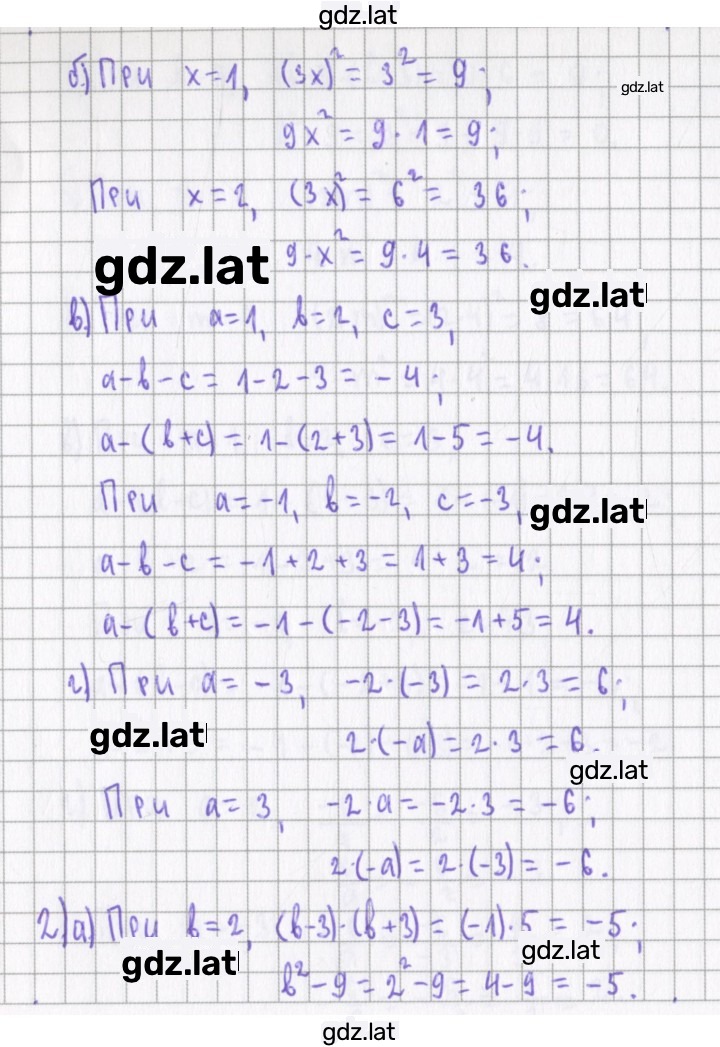 gdz.lat
б) При x=1, (3x)² = 3² = 9;
gdz.lat
9x² = 9·1 = 9;
При x=2, (3x)² = 6² = 36;
gdz.lat
9·x² = 9·4 = 36.
gdz.lat
в) При a=1, b=2, c=3,
a-b-c = 1-2-3 = -4;
a-(b+c) = 1-(2+3) = 1-5 = -4.
При a=-1, b=-2, c=-3,
gdz.lat
a-b-c = -1+2+3 = 1+3 = 4;
a-(b+c) = -1-(-2-3) = -1+5 = 4.
г) При a=-3, -2·(-3) = 2·3 = 6;
gdz.lat
2·(-a) = 2·3 = 6.
gdz.lat
При a=3, -2·a = -2·3 = -6;
2·(-a) = 2·(-3) = -6.
2) а) При b=2, (b-3)·(b+3) = (-1)·5 = -5;
gdz.lat
gdz.lat
b²-9 = 2²-9 = 4-9 = -5.
gdz.lat